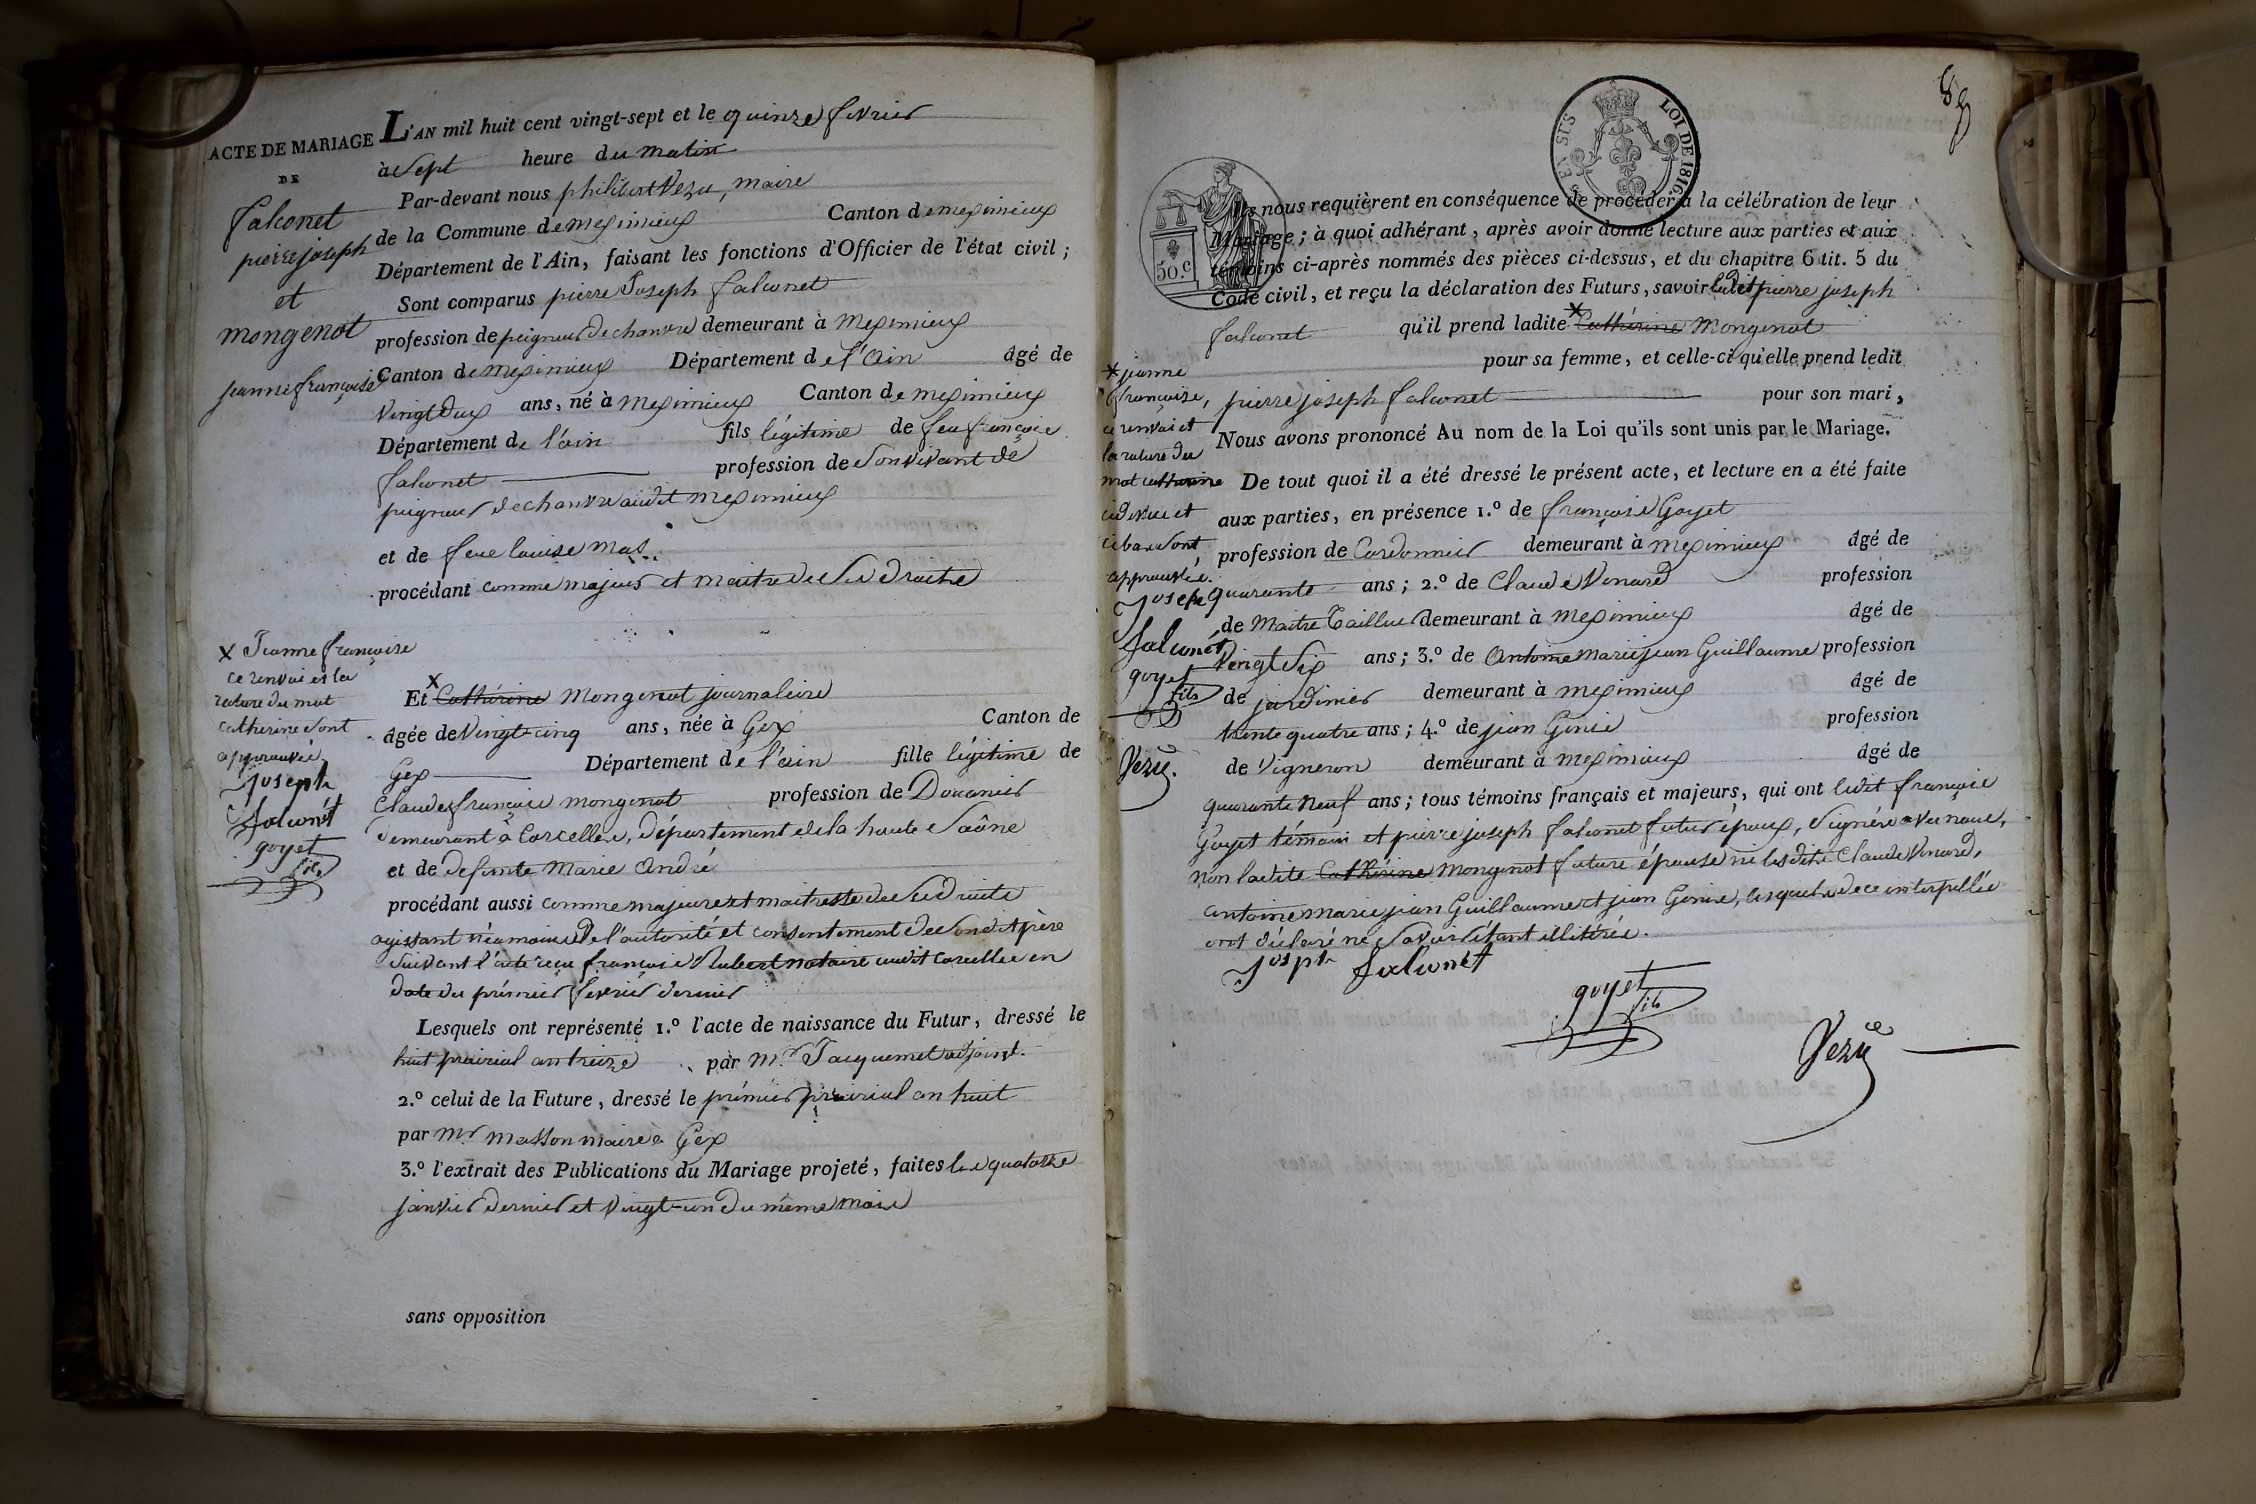 ACTE DE MARIAGE
DE
falconet
pierre joseph
et
mongenot
jeanne françoise
L'AN mil huit cent vingt-sept et le quinze fevrier
à sept heure du matin
Par-devant nous philibert Vezu, maire
de la Commune de meximieux Canton de meximieux
Département de l'Ain, faisant les fonctions d'Officier de l'état civil ;
Sont comparus pierre Joseph falconet
profession de peigneur de chanvre demeurant à Meximieux
Canton de meximieux Département de l'ain âgé de
vingt deux ans, né à Meximieux Canton de meximieux
Département de l'ain fils légitime de feu françois
falconet profession de son vivant de
peigneur de chanvre audit meximieux
et de feue louise mas.
procédant comme majeur et maitre de ses droits
x Jeanne françoise
ce renvoi et la
rature du mot
catherine sont
approuvés
joseph
falconet
goyet
fils
Et x Cathérine Mongenot journaliere
âgée de vingt-cinq ans, née à Gex Canton de
Gex Département de l'ain fille légitime de
Claude françois mongenot profession de Douanier
demeurant à Corcelles, département de la haute Saône
et de defunte Marie André
procédant aussi comme majeure et maitresse de ses droits
agissant néamoins de l'autorité et consentement de sondit père
suivant l'acte reçu françois notaire audit corcelles en
date du prémier fevrier dernier
Lesquels ont représenté 1.º l'acte de naissance du Futur, dressé le
huit prairial an treize par Mr Jacquemet adjoint.
2.º celui de la Future, dressé le prémier prairial an huit
par Mr Masson maire à Gex
3.º l'extrait des Publications du Mariage projeté, faites les quatorze
janvier dernier et vingt-un du même mois
sans opposition
LOI DE 1816.
50.c
Ils nous requièrent en conséquence de procéder à la célébration de leur
Mariage ; à quoi adhérant, après avoir donné lecture aux parties et aux
témoins ci-après nommés des pièces ci-dessus, et du chapitre 6 tit. 5 du
Code civil, et reçu la déclaration des Futurs, savoir ledit pierre joseph
falconet qu'il prend ladite x Cathérine Mongenot
pour sa femme, et celle-ci qu'elle prend ledit
pierre joseph falconet pour son mari,
Nous avons prononcé Au nom de la Loi qu'ils sont unis par le Mariage.
De tout quoi il a été dressé le présent acte, et lecture en a été faite
aux parties, en présence 1.º de françois Goyet
profession de Cordonnier demeurant à meximieux âgé de
quarante ans ; 2.º de Claude Venard profession
de Maitre Tailleur demeurant à meximieux âgé de
vingt six ans ; 3.º de Antoine Marie jean Guillaume profession
de jardinier demeurant à meximieux âgé de
trente quatre ans ; 4.º de jean Genie profession
de vigneron demeurant à meximieux âgé de
quarante neuf ans ; tous témoins français et majeurs, qui ont ledit françois
Goyet témoin et pierre joseph falconet futur époux, signéz avec nous,
non ladite Cathérine Mongenot future épouse ni lesdits Claude Venard,
antoine marie jean Guillaume et jean Genie, lesquels de ce interpellés
ont déclaré ne savoir étant illitérés.
x jeanne
françoise,
ce renvoi et
la rature du
mot catherine
ci dessus et
ci bas sont
approuvés.
Joseph
falconet
goyet
fils
Vezu.
joseph falconet
goyet
fils
Vezu